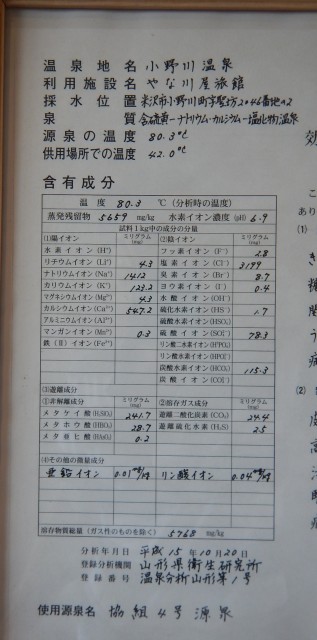 温泉地名 小野川温泉
利用施設名 やな川屋旅館
採水位置 米沢市小野川町字塱坊2046番地の2
泉質 含硫黄ーナトリウム・カルシウムー塩化物温泉
源泉の温度 80.3℃
供用場所での温度 42.0℃
含有成分
温度 80.3 ℃(分析時の温度)
蒸発残留物 5659 mg/kg 水素イオン濃度(pH) 6.9
試料1kg中の成分の分量
(1)陽イオン ミリグラム(mg) (2)陰イオン ミリグラム(mg)
水素イオン(H⁺) フッ素イオン(F⁻) 2.8
リチウムイオン(Li⁺) 4.3 塩素イオン(Cl⁻) 3199
ナトリウムイオン(Na⁺) 1412 臭素イオン(Br⁻) 8.7
カリウムイオン(K⁺) 123.2 ヨウ素イオン(I⁻) 0.4
マグネシウムイオン(Mg²⁺) 4.3 水酸イオン(OH⁻)
カルシウムイオン(Ca²⁺) 547.2 硫化水素イオン(HS⁻) 1.7
アルミニウムイオン(Al³⁺) 硫酸水素イオン(HSO₄⁻)
マンガンイオン(Mn²⁺) 0.3 硫酸イオン(SO₄²⁻) 78.3
鉄(II)イオン(Fe²⁺) リン酸水素イオン(HPO₄²⁻)
リン酸水素イオン(HPO₄²⁻)
炭酸水素イオン(HCO₃⁻) 115.3
炭酸イオン(CO₃²⁻)
(3)遊離成分
①非解離成分 ミリグラム(mg) ②溶存ガス成分 ミリグラム(mg)
メタケイ酸(H₂SiO₃) 241.7 遊離二酸化炭素(CO₂) 24.4
メタホウ酸(HBO₂) 28.7 遊離硫化水素(H₂S) 2.5
メタ亜ヒ酸(HAsO₂) 0.2
(4)その他の微量成分
亜鉛イオン 0.01mg/kg リン酸イオン 0.04mg/kg
溶存物質総量(ガス性のものを除く) 5768 mg/kg
分析年月日 平成15年10月20日
登録分析機関 山形県衛生研究所
登録番号 温泉分析山形第1号
使用源泉名 協組4号源泉